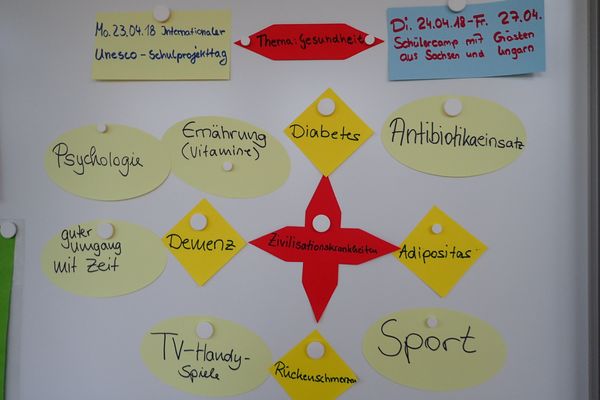 Mo. 23.04.18 Internationaler
Unesco - Schulprojekttag
Thema: Gesundheit
Di. 24.04.18 - Fr. 27.04.
Schülercamp mit Gästen
aus Sachsen und Ungarn
Psychologie
Ernährung
(Vitamine)
Diabetes
Antibiotikaeinsatz
guter
Umgang
mit Zeit
Demenz
Zivilisationskrankheiten
Adipositas
TV-Handy-
Spiele
Rückenschmerzen
Sport